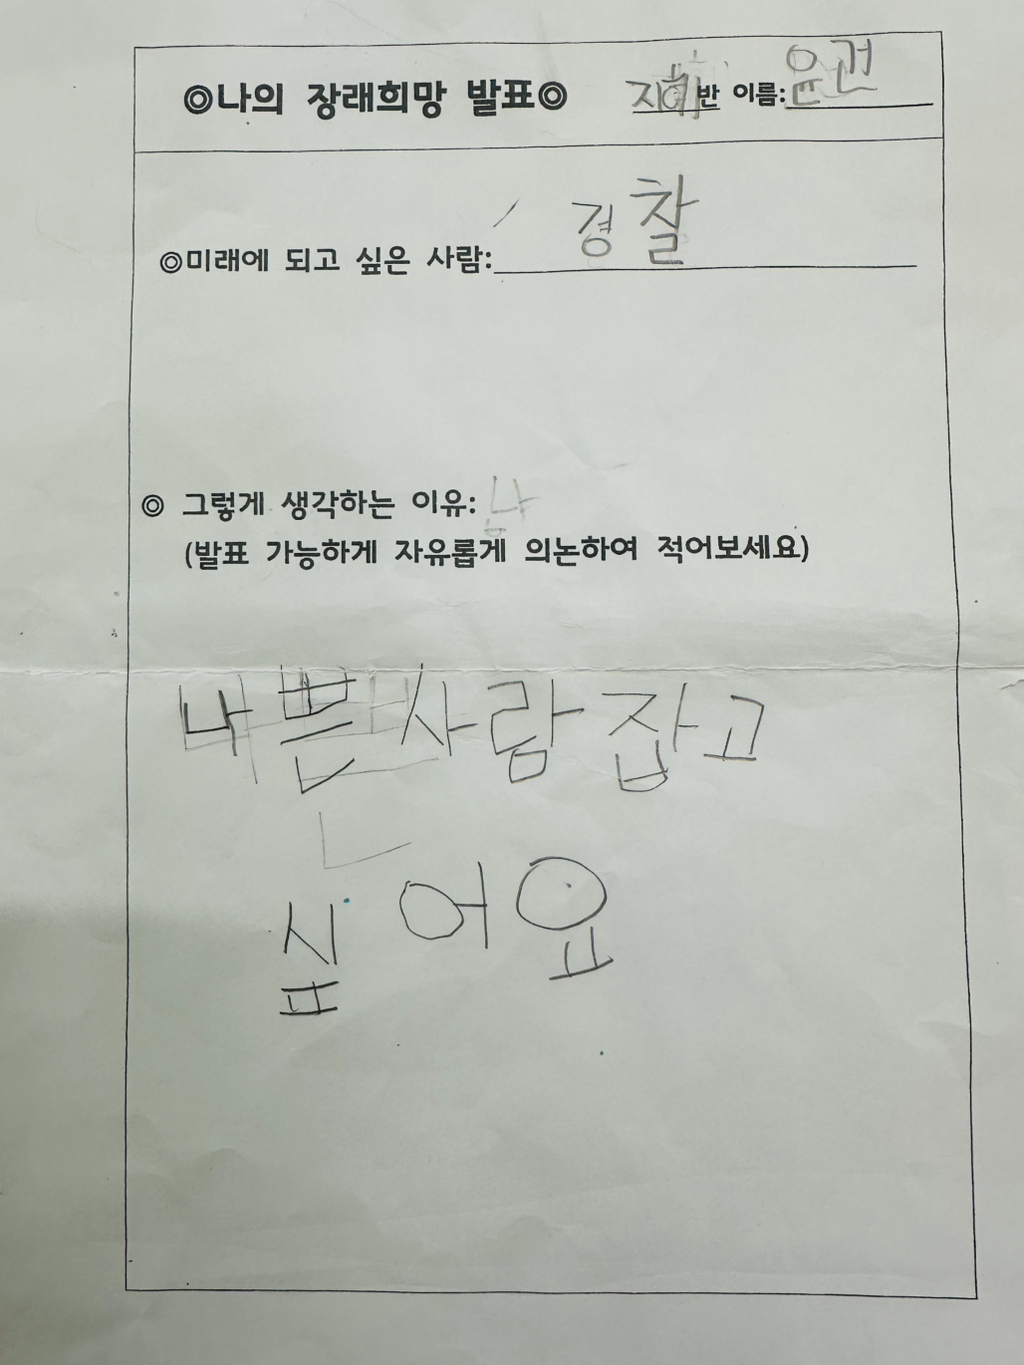 ◎나의 장래희망 발표◎ 지혜반 이름: 윤건
◎미래에 되고 싶은 사람: 경찰
◎ 그렇게 생각하는 이유: 나
(발표 가능하게 자유롭게 의논하여 적어보세요)
나쁜 사람 잡고
싶어요